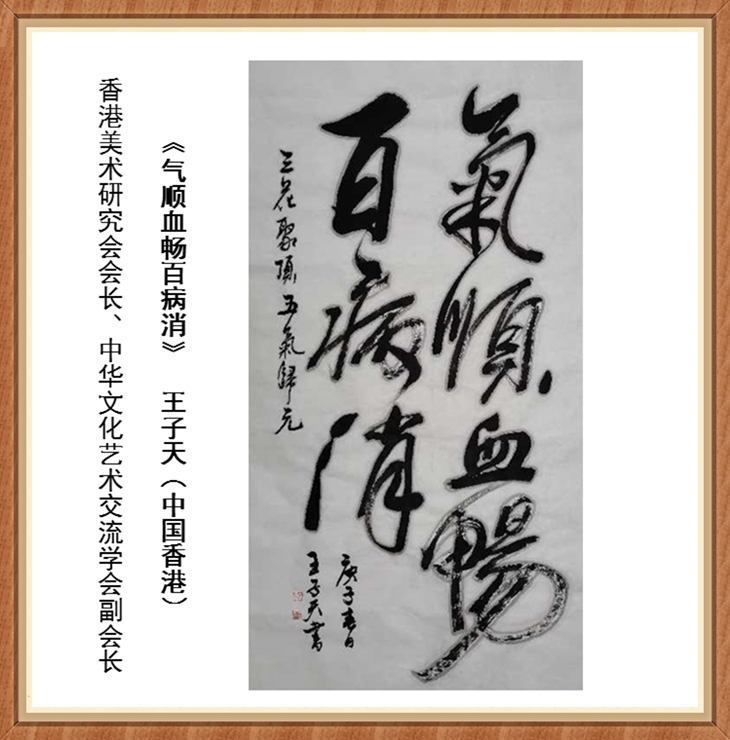 氣順血暢
百病消
三花聚頂五氣歸元
庚子春日
王子天書
《气顺血畅百病消》 王子天（中国香港）
香港美术研究会会长、中华文化艺术交流学会副会长